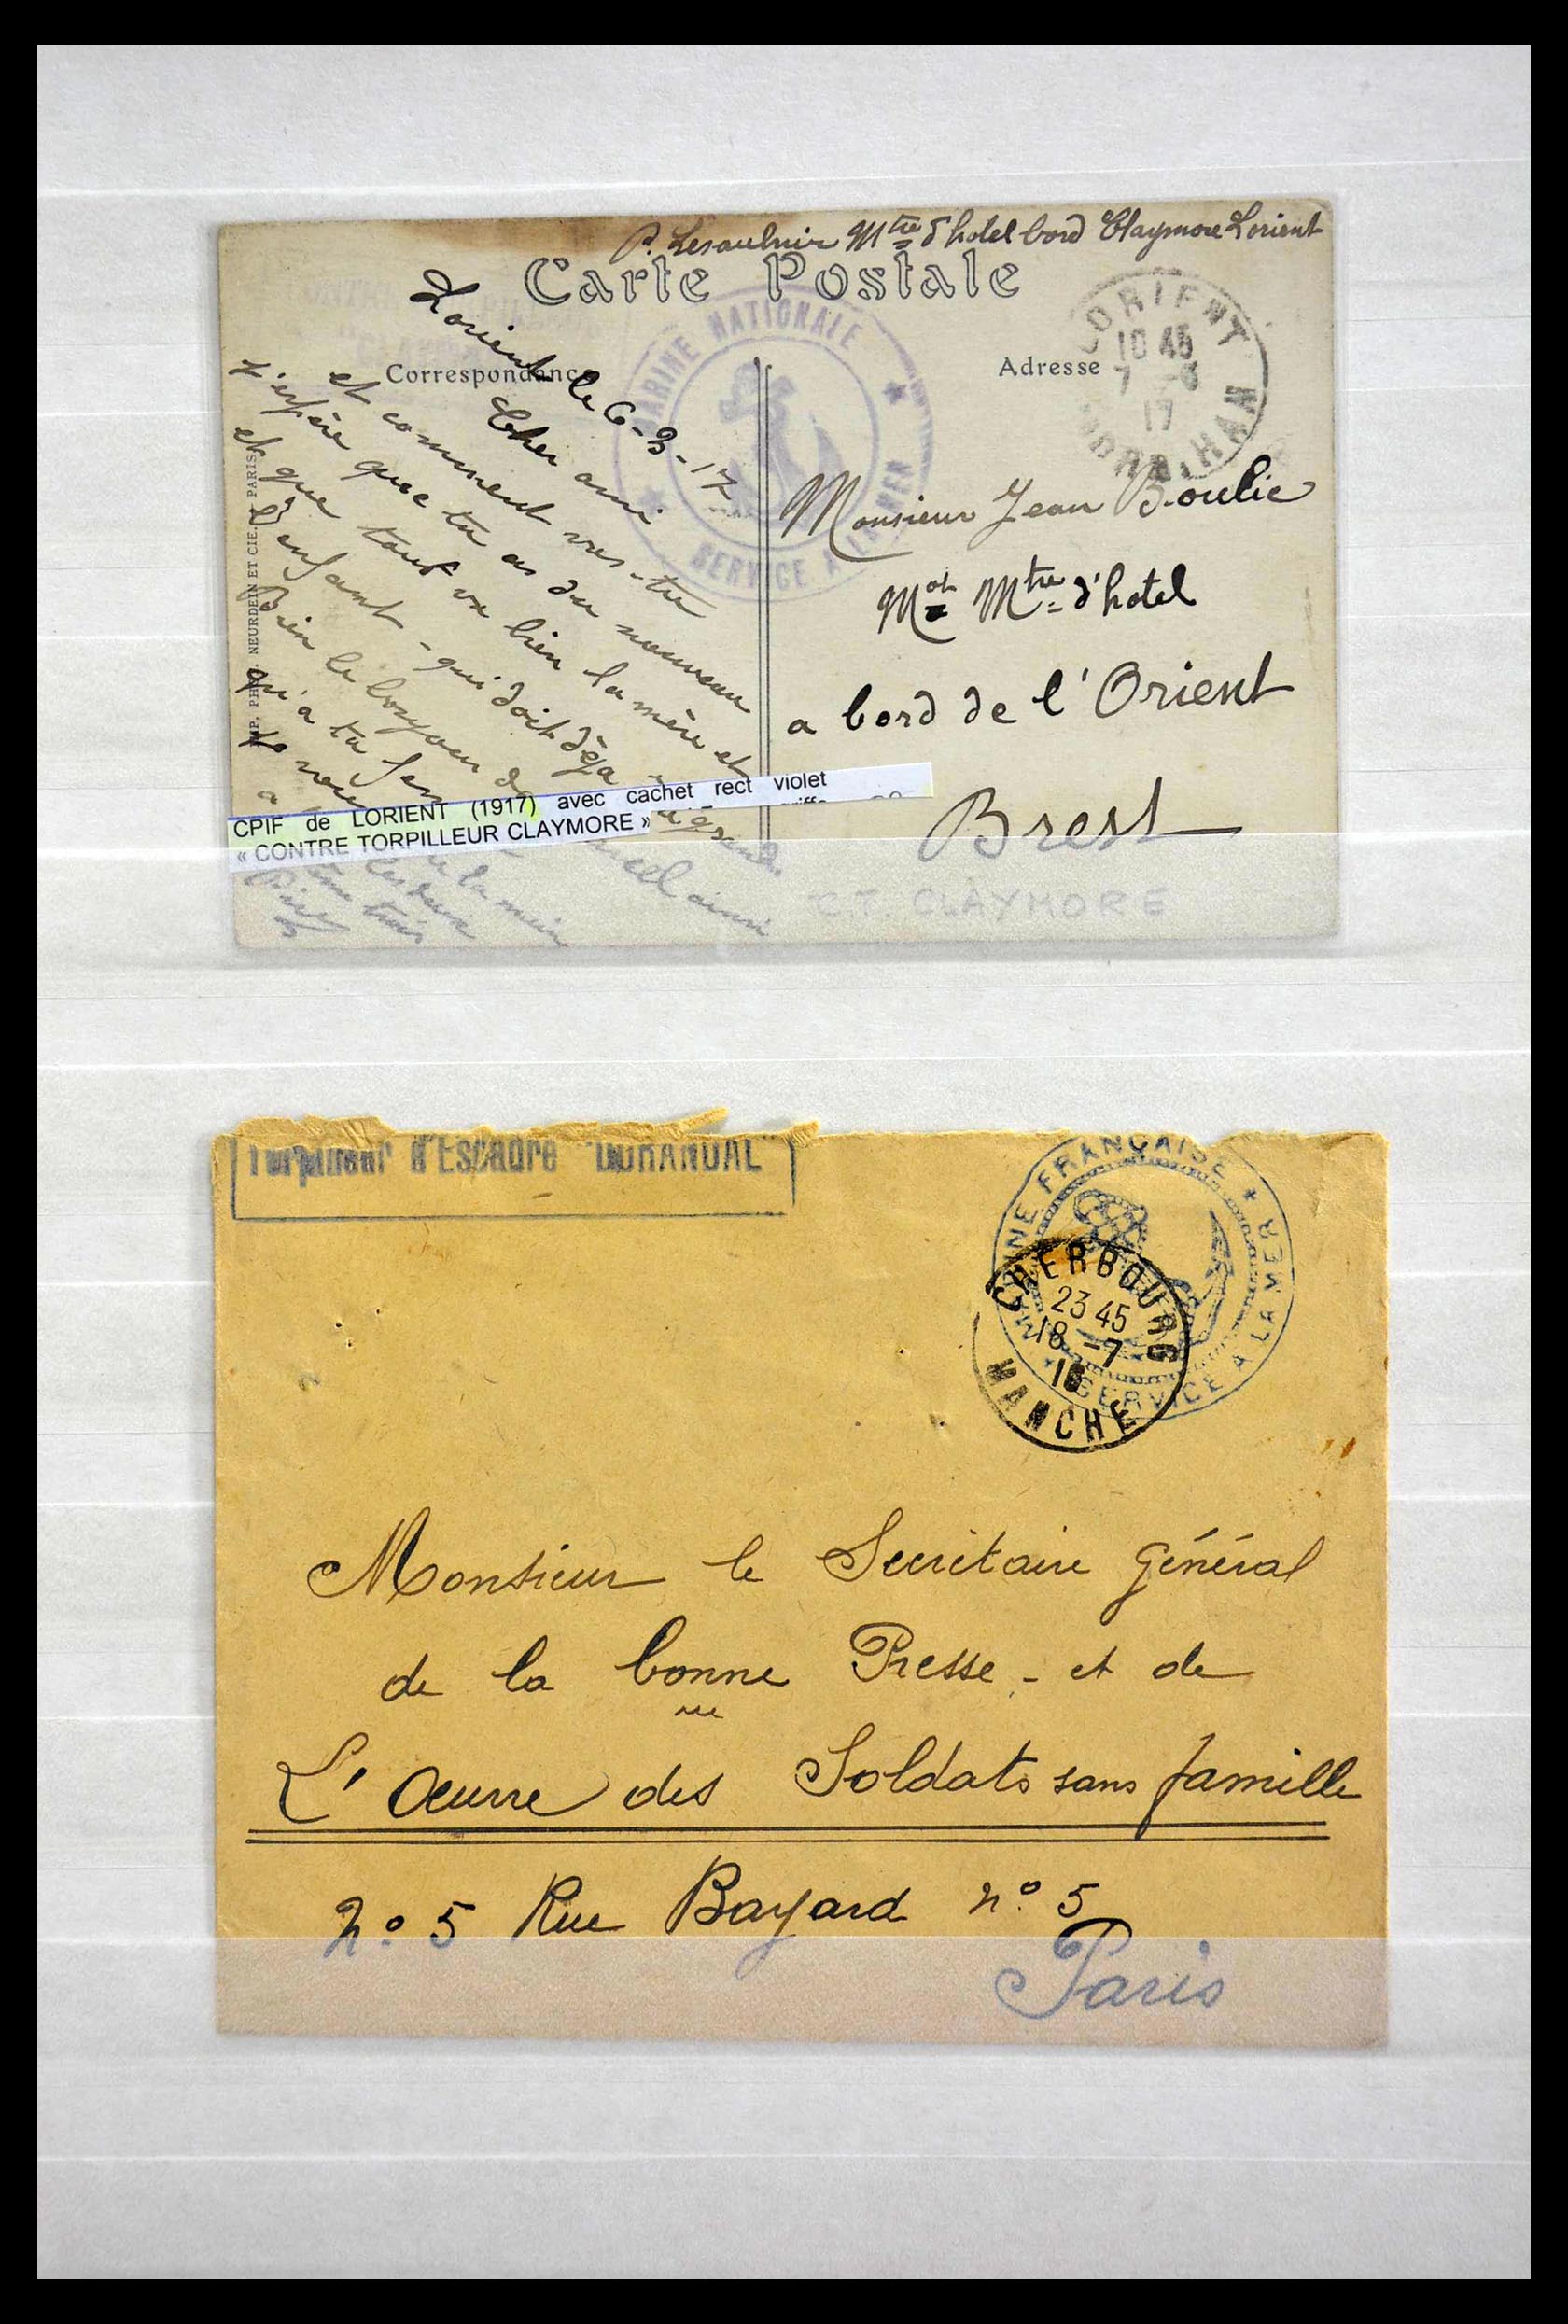 P. Lesaulnier Mtre d'hotel bord Claymore Lorient
Carte Postale
Correspondance
Adresse
MARINE NATIONALE
SERVICE A LA MER
LORIENT
10 45
7 -3
17
MORBIHAN
Lorient le 6-3-17
Cher ami
et comment vas-tu
j'espère que tu as du nouveau
et que tout va bien la mère et
l'enfant - qui doit dèja
Bien le bonjour de ainsi
qu'a ta
IMP. PHOT. NEURDEIN ET CIE. PARIS
Monsieur Jean Boulic
Mot Mtre d'hotel
a bord de l'Orient
Brest
CPIF de LORIENT (1917) avec cachet rect violet
« CONTRE TORPILLEUR CLAYMORE »
C.T. CLAYMORE
Torpilleur d'Escadre "DURANDAL"
MARINE FRANÇAISE
SERVICE A LA MER
CHERBOURG
23 45
18 -7
16
MANCHE
Monsieur le Secrétaire Général
de la bonne Presse - et de
L'Oeuvre des Soldats sans famille
No 5 Rue Bayard no 5
Paris